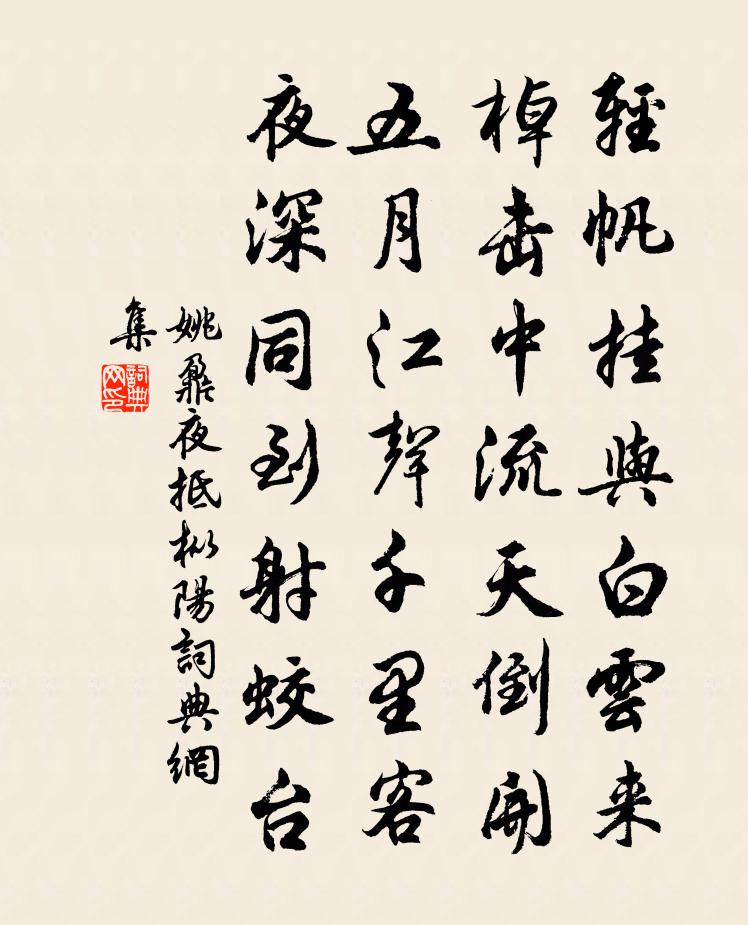 輕帆挂與白雲来
棹击中流天倒開
五月江聲千里客
夜深同到射蛟台
姚鼐夜抵枞陽詞典網
集
詞典
网印